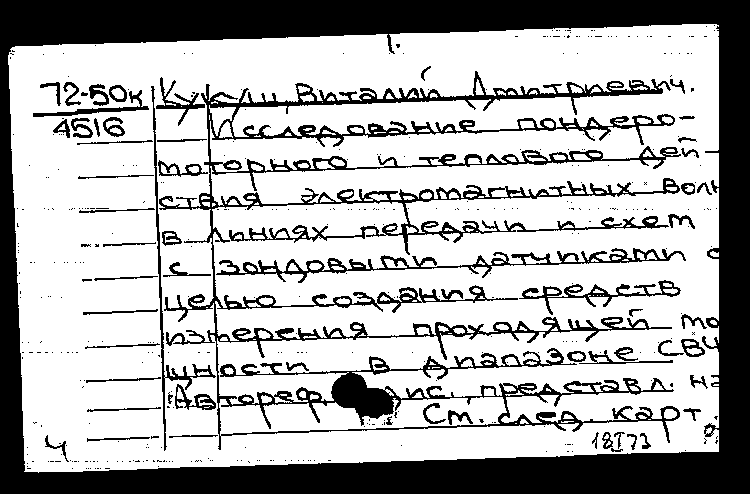 1.
72-50к Кукуш, Виталий Дмитриевич.
4516 Исследование пондеро-
моторного и теплового дей-
ствия электромагнитных волн
в линиях передачи и схем
с зондовыми датчиками с
целью создания средств
измерения проходящей мо
щности в диапазоне СВЧ
Автореф. дис., представл. на
См. след. карт.
4 18I73